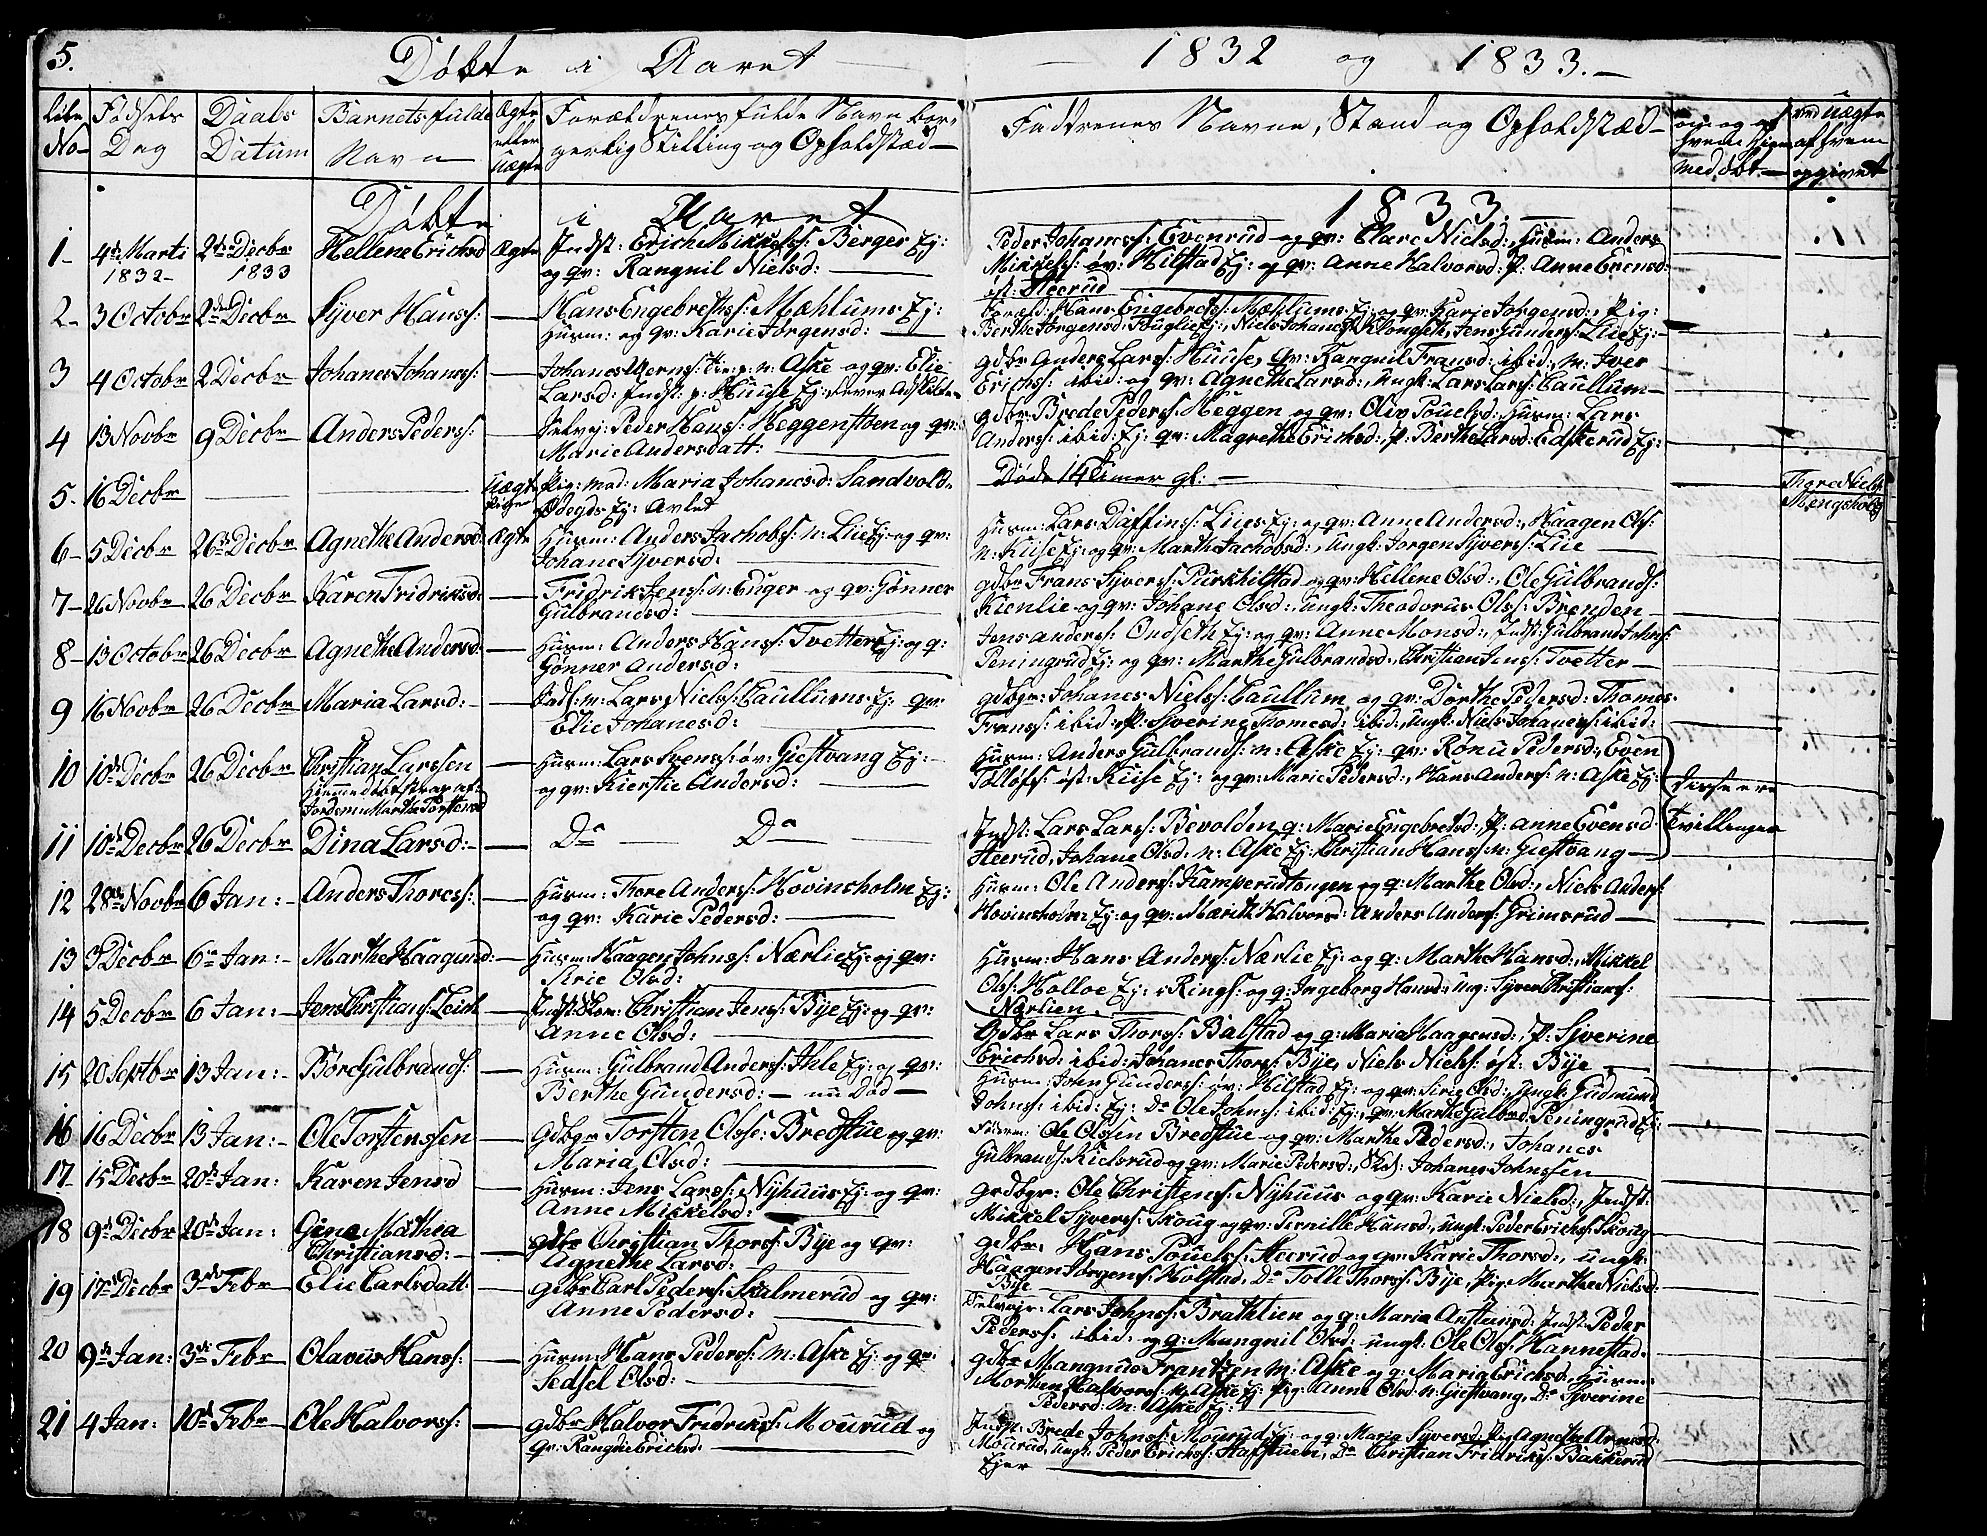 5.
Döbte i Aaret
1832 og 1833.
Födsels Dag
Daabs Datum
Barnets fulde Navn
Ægte eller Uægte
Forældrenes fulde Navne bor-
gerlig Stilling og Opholdstæd
Faddrenes Navne, Stand og Opholdstæd
med döbt.
ved uægte af hvem opgivet
Döbte i Aaret
1833.
1 4de Marti 1832 2den Decbr 1833 Hellene Erichsd Ægte Indst: Erich Mikkelss: Berger Ej:
og qv: Rangnil Nielsd:
Peder Johaness: Evenrud og qv: Clare Nielsd: Husm: Anders
Mikkelss: öv: Hilstad Ej: og qv: Anne Halvorsd: P: Anne Evensd:
ibd: Heerud
2 3 Octobr 2den Decbr Syver Hanss: Hans Engebrethss: Mæhlums Ej:
Husm: og qv: Karie Jörgensd:
Foræld: Hans Engebretss: Mæhlums Ej: og qv: Karie Jorgensd: Pig:
Berthe Jörgensd: Niels Johaness: Klongseh, Jens Gunderss: Lue Ej:
3 4 Octobr 2 Decbr Johanes Johaness: Johanes n: Aske og qv: Elie
Larsd: Indst: p: Huuse Ej:
gdbr Anders Larss: Huuse, qv: Rangnil Fransd: ibid: n: Iver
Erichss: ibid: og qv: Agnethe Larsd:, Ungk: Lars Larss: Caullum
4 13 Novbr 9 Decbr Anders Pederss: Selvej: Peder Hanss: Heggenstven og qv:
Marie Andersdatt:
gdbr: Brede Pederss: Heggen og qv: Oliv Pouelsd: Husm: Lars
Anderss: ibid: Ej: qv: Magrethe Erichsd: P: Berthe Larsd: Edskerud Ej:
5 16 Decbr Uægte Pig: mod: Maria Johanesd: Sandvold
Ödegds Ej: Avlet
Döde 14 Timer gl:
Thore Niels: Stengsholt
6 5 Decbr 26 Decbr Agnethe Andersd: Ægte Husm: Anders Jachobs: n: Lue Ej: og qv:
Johane Syversd:
Husm: Lars Daffinss: Lues Ej: og qv: Anne Andersd:, Haagen Ols:
n: Kiise Ej: og qv: Marthe Jachobsd:, Ungk: Jorgen Syverss: Lue
7 26 Novbr 26 Decbr Karen Fridriksd: Fridrik Jenss: n: Enger og qv: Gönner
Gulbrandsd:
gdbr Frans Syverss: Purkhilstad og qv: Hellene Olsd:, Ole Gulbrandss:
Kienlie og qv: Johane Olsd:, Ungk: Theodorus Olss: Brenden
8 13 Octobr 26 Decbr Agnethe Andersd: Husm: Anders Hanss: Tvetter Ej: og q:
Gönner Andersd:
Jens Anderss: Ondseth Ej: og qv: Anne Monsd:, Indst: Gulbrand Johnss:
Peningrud Ej: og qv: Marthe Gulbrandsd:, Christian Jenss: Tvetter
9 16 Novbr 26 Decbr Maria Larsd: Indst: n: Lars Nielss: Caullums Ej: qv:
Elie Johanesd:
gdbr: Johanes Nielss: Caullum og qv: Dorthe Pedersd: Thomes
Franss: ibid: P: Syverine Thomesd: ibid:, Ungk: Niels Johaness: ibid:
10 10de Decbr 26 Decbr Christian Larssen
Hiemedöbt strax af
Jordem: Marthe Torstensd
Husm: Lars Svenss: öv: Giestvang Ej:
og qv: Kierstie Andersd:
Husm: Anders Gulbrandss: n: Aske Ej: qv: Rönu Pedersd:, Even
Tollefss: öst: Kiise Ej: og qv: Marie Pedersd:, Hans Anderss: n: Aske Ej:
disse ere Tvillinger
11 10de Decbr 26 Decbr Dina Larsd: Do Do
Indst: Lars Larss: Bevolden q: Marie Engebretsd:, P: Anne Evensd:
Heerud, Johane Olsd: n: Aske Ej: Christian Hanss: n: Giestvang
12 28de Novbr 6 Jan: Anders Thoress: Husm: Thore Anderss: Hovinsholm Ej:
og qv: Karie Pedersd:
Husm: Ole Anderss: Kamperudtongen og q: Marthe Olsd:, Niels Anderss:
Hovinsholm: Ej: og qv: Marith Halvorsd: Anders Anderss: Grimsrud
13 3 Decbr 6 Jan: Marthe Haagensd: Husm: Haagen Johnss: Nærlie Ej: og qv:
Sirie Olsd:
Husm: Hans Anderss: Nærlie Ej: og q: Marthe Hansd:, Mikkel
Olss: Holloe Ej: i Rings: og q: Ingeborg Hansd: Ung: Syver Christianss:
Nærlien
14 5 Decbr 6 Jan: Jens Christians: Leisth Christian Jenss: Bye Ej: og qv:
Anne Olsd:
Gdbr Lars Thorss: Balstad og q: Maria Haagensd:, P: Syverine
Erichsd: ibid: Johanes Thorss: Bye, Niels Nielss: öst: Bye
15 20 Septbr 13 Jan: Böre Gulbrands: Husm: Gulbrand Anderss: Ihle Ej: og qv:
Berthe Gundersd: nu Död
Husm: John Gunderss: öv: Hilstad Ej: og qv: Sirie Olsd:, Ungk: Gudmund
Johns: ibid: Ej: Do Ole Johns: ibid: Ej: qv: Marthe Gulbrd: Peningrud Ej:
16 16 Decbr 13 Jan: Ole Torstenssen Gdbgr Torsten Olss: Bredstue og qv:
Maria Olsd:
Ole Olssen Bredstue og qv: Marthe Pedersd:, Johanes
Gulbrands: Kielsrud og qv: Marie Pedersd:, Skol: Johanes Johnssen
17 15 Decbr 20de Jan: Karen Jensd Husm: Jens Larss: Nyhuus Ej: og qv:
Anne Mickelsd:
Grdbgr: Ole Christenss: Nyhuus og qv: Karie Nielsd:, Indst:
Mikkel Syverss: Skoug og qv: Pernille Hansd:, Ungk: Peder Erichss: Skoug
18 9de Decbr 20de Jan: Gine Mathea
Christiansd:
gdbr Christian Thorss: Bye og qv:
Agnethe Larsd:
gdbr: Hans Pouelss: Heerud og qv: Karie Thorsd:, ungk:
Haagen Jorgens: Holstad, Do Tolle Thorss: Bye, Pig Marthe Nielsd:
Bye
19 17de Decbr 3de Febr Elie Carlsdatt: gdbr Carl Peders: Skalmerud og qv:
Anne Pedersd:
Selvejr: Lars Johnss: Brathlien og q: Maria Indst: Peder
Pederss: ibid: og q: Mangnil Olsd: ungk: Ole Ols: Hannestad
20 9de Jan: 3de Febr Olavus Hanss: Husm: Hans Pederss: n: Aske Ej: og qv:
Sedsel Olsd:
gdbr Mangnus Frantzen n: Aske og q: Maria Erichsd, Husm:
Morthen Halvorss: n: Aske Ej: Pig: Anne Olsd: n: Giestvang, Do Syverine
Pedersd: n: Aske Ej:
21 4 Jan: 10de Febr Ole Halvorss: gdbr Halvor Fridrikss: Mourud og
qv: Rangdie Erichsd:
Indst: Brede Johnss: Mourud Ej: og q: Maria Syversd: Pig Agnethe Arnesd:
Mourud, Ungk: Peder Erichss: Hafstuen, Do Christian Fridrikss: Bakkerud
Ejer